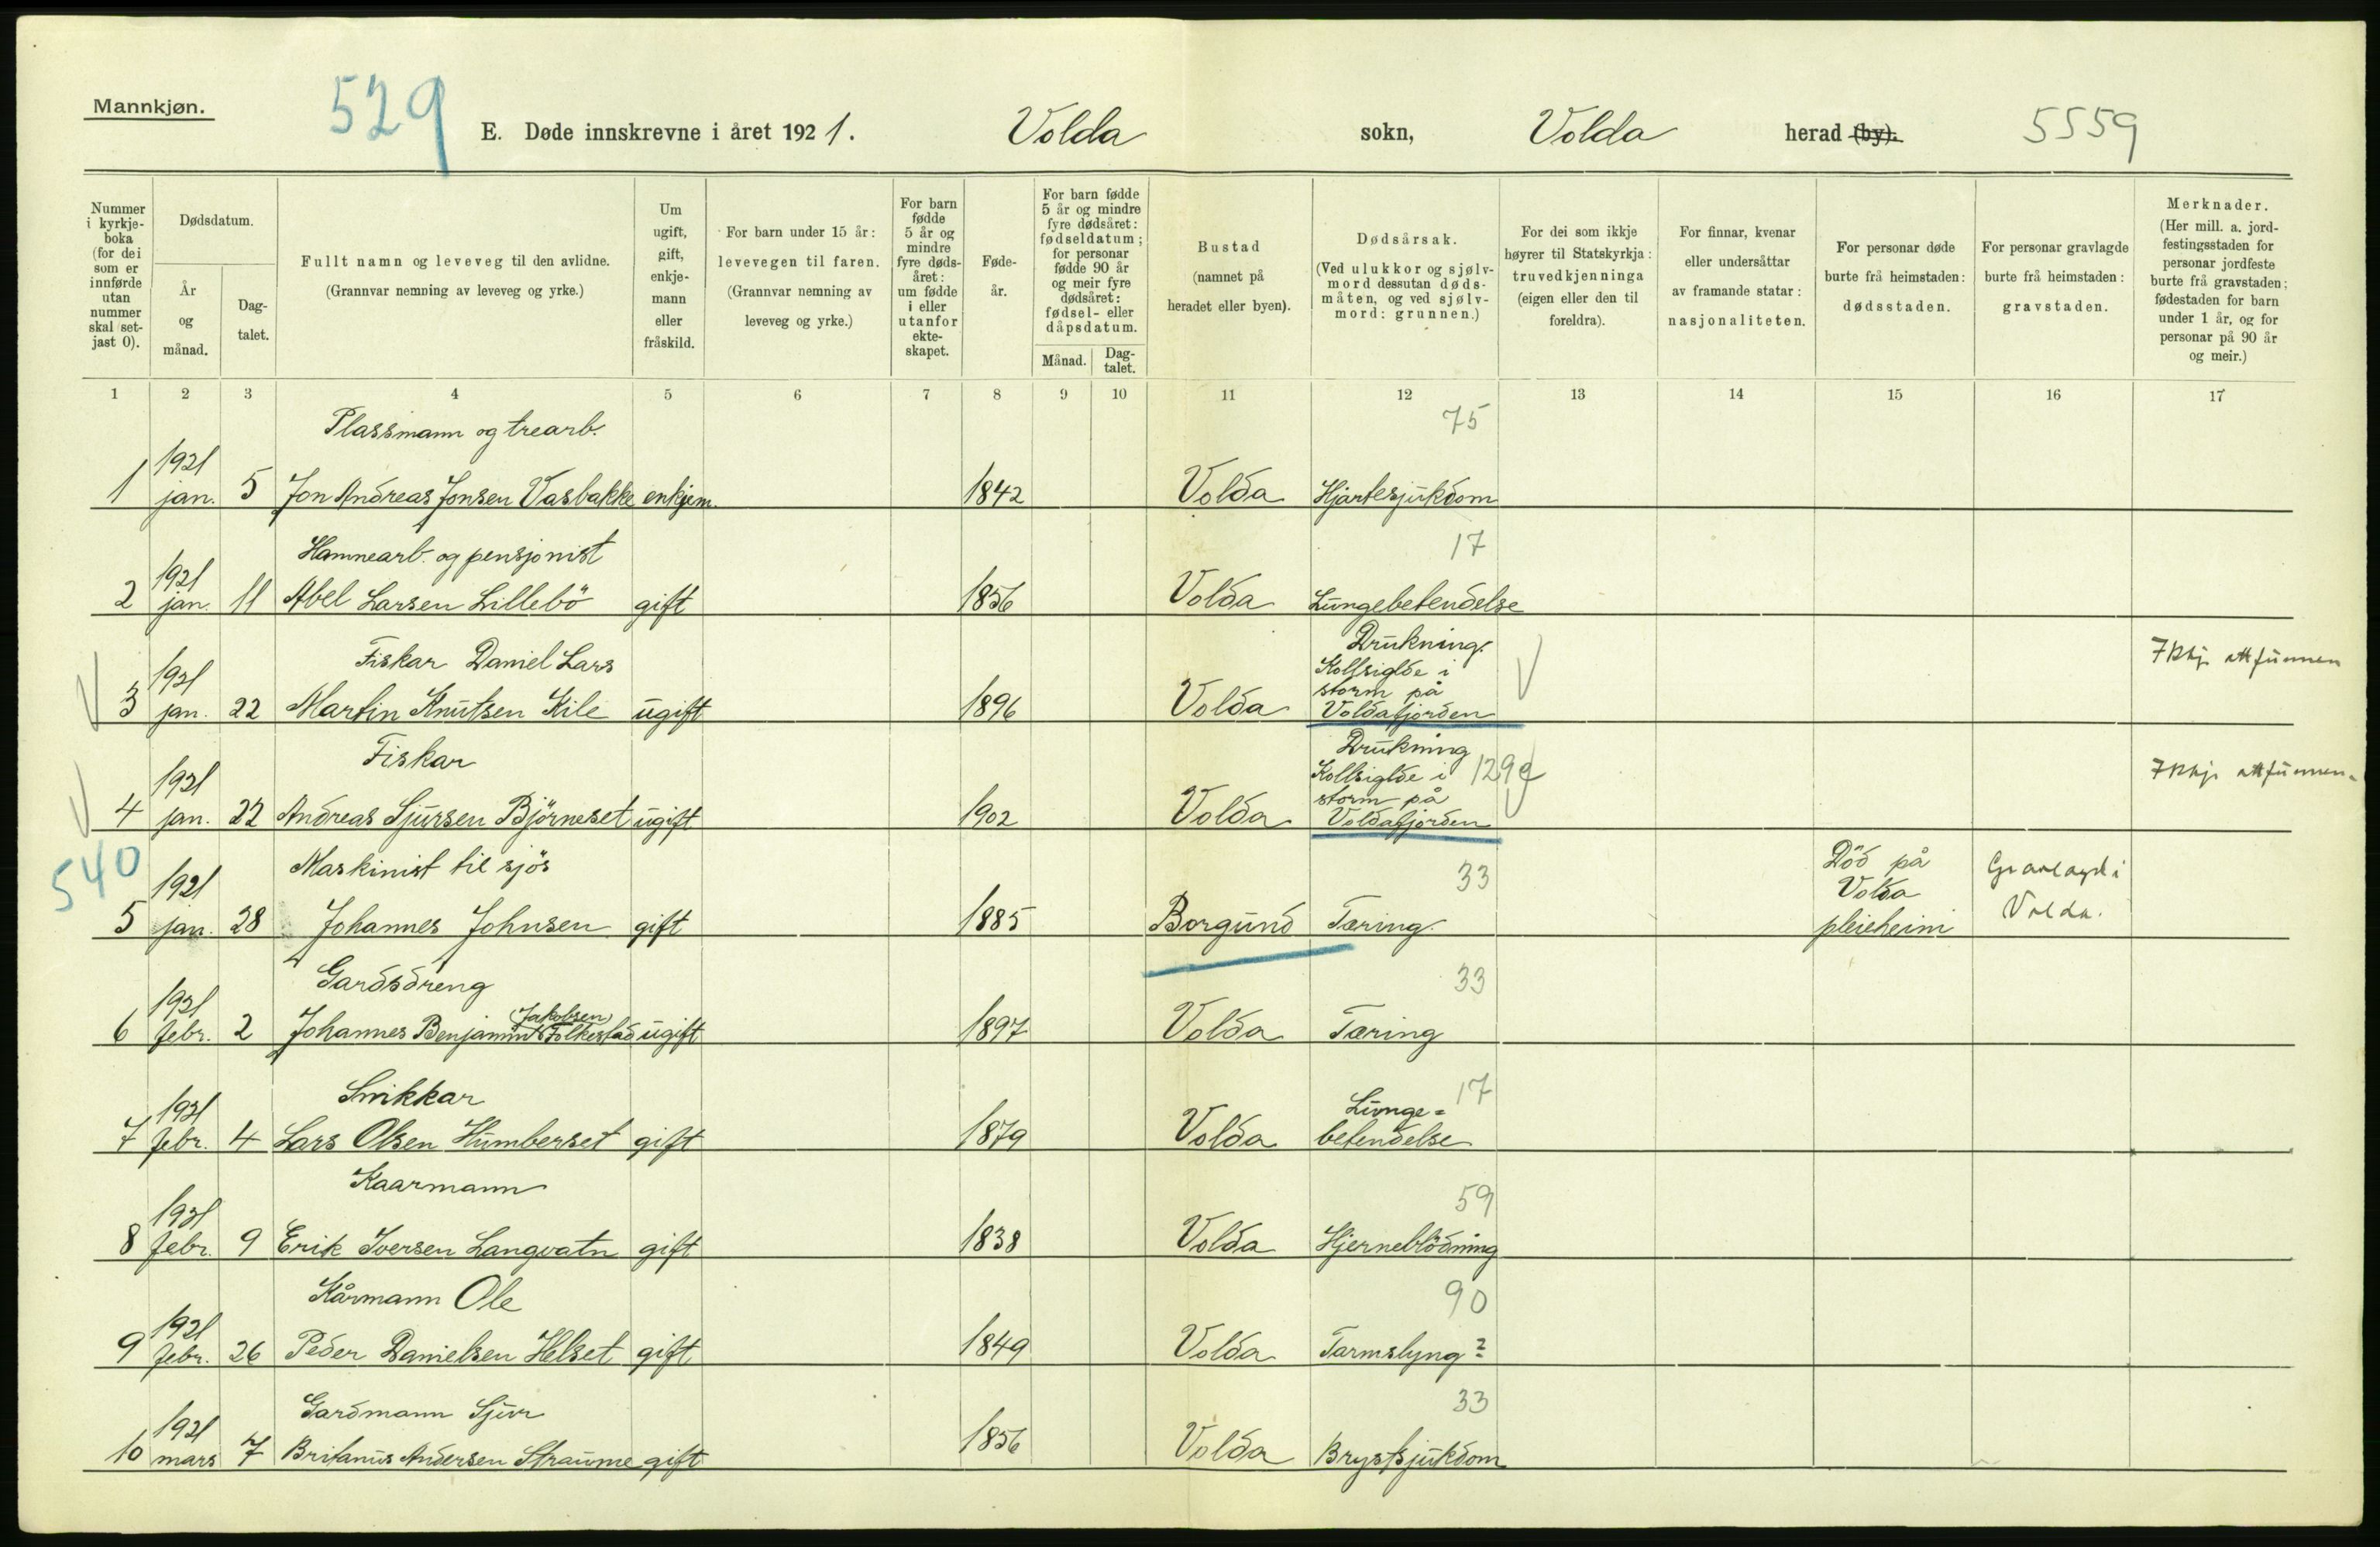 Mannkjøn.
529
E. Døde innskrevne i året 1921. Volda sokn, Volda herad (by). 5559
Nummer i kyrkjeboka (for dei som er innførde utan nummer skal setjast 0).
Dødsdatum.
År og månad.
Dagtalet.
Fullt namn og leveveg til den avlidne.
(Grannvar nemning av leveveg og yrke.)
Um ugift, gift, enkjemann eller fråskild.
For barn under 15 år: levevegen til faren.
(Grannvar nemning av leveveg og yrke.)
For barn fødde 5 år og mindre fyre dødsåret: um fødde i eller utanfor ekteskapet.
Fødeår.
For barn fødde 5 år og mindre fyre dødsåret: fødseldatum; for personar fødde 90 år og meir fyre dødsåret: fødsel- eller dåpsdatum.
Månad.
Dagtalet.
Bustad (namnet på heradet eller byen).
Dødsårsak.
(Ved ulukkor og sjølvmord dessutan dødsmåten, og ved sjølvmord: grunnen.)
For dei som ikkje høyrer til Statskyrkja: truvedkjenninga (eigen eller den til foreldra).
For finnar, kvenar eller undersåttar av framande statar: nasjonaliteten.
For personar døde burte frå heimstaden: dødsstaden.
For personar gravlagde burte frå heimstaden: gravstaden.
Merknader.
(Her mill. a. jordfestingsstaden for personar jordfeste burte frå gravstaden; fødestaden for barn under 1 år, og for personar på 90 år og meir.)
1 2 3 4 5 6 7 8 9 10 11 12 13 14 15 16 17
Plassmann og trearb. 75
1 1921 jan. 5 Jon Andreas Jonsen Vasbakke enkjem. 1842 Volda Hjartesjukdom
Hamnearb. og pensjonist 17
2 1921 jan. 11 Abel Larsen Lillebö gift 1856 Volda Lungebetendelse
Fiskar Daniel Lars
3 1921 jan. 22 Martin Knutsen Kile ugift 1896 Volda Drukning. Kollsiglde i storm på Voldafjorden
Fiskar
4 1921 jan. 22 Andreas Sjursen Björneset ugift 1902 Volda Drukning Kollsiglde i storm på Voldafjorden
540
Maskinist til sjös 33
5 1921 jan. 28 Johannes Johnsen gift 1885 Borgund Tæring. Död på Volda pleieheim Gravlagd i Volda.
Gardsdreng 33
6 1921 febr. 2 Johannes Benjamin (Jakobsen) Folkestad ugift 1897 Volda Tæring
Snikkar 17
7 1921 febr. 4 Lars Olsen Humberset gift 1879 Volda Lunge=betendelse
Kaarmann 59
8 1921 febr. 9 Erik Iversen Langvatn gift 1838 Volda Hjerneblödning
Kårmann Ole 90
9 1921 febr. 26 Peder Danielsen Helset gift 1849 Volda Tarmslyng?
Gardmann Sjur 33
10 1921 mars 7 Britanus Andersen Straume gift 1856 Volda Brystsjukdom